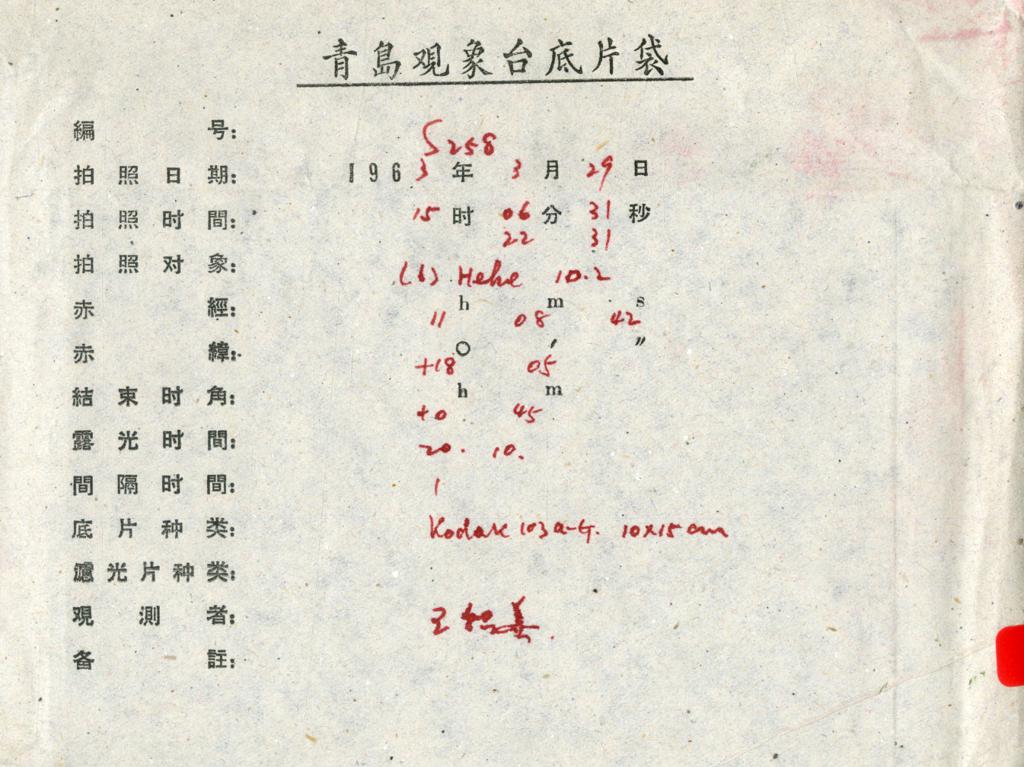 青島观象台底片袋
編号: S258
拍照日期: 1963年3月29日
拍照时間: 15时06分31秒
22 31
拍照对象: (6) Hebe 10.2
赤經: 11h 08m 42s
赤緯: +18° 05′ ″
結束时角: +0h 45m
露光时間: 20. 10.
間隔时間: 1
底片种类: Kodak 103a-G. 10x15cm
濾光片种类:
观測者: 王
备註: